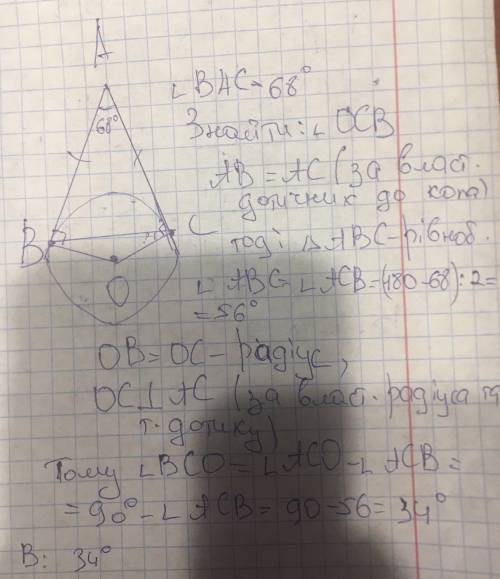 A
∠BAC = 68°
68°
Знайти: ∠OCB
AB = AC (за власт.
дотичних до кола)
B
C
тоді △ABC - рівноб.
O
∠ABC = ∠ACB = (180-68):2=
= 56°
OB = OC - радіус,
OC⊥AC (за власт. радіуса та
т. дотику)
Тому ∠BCO = ∠ACO - ∠ACB =
= 90° - ∠ACB = 90 - 56 = 34°
В: 34°